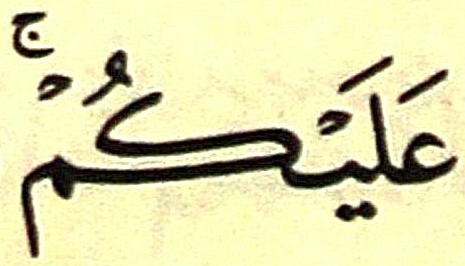 عَلَيْكُمْ ۚ